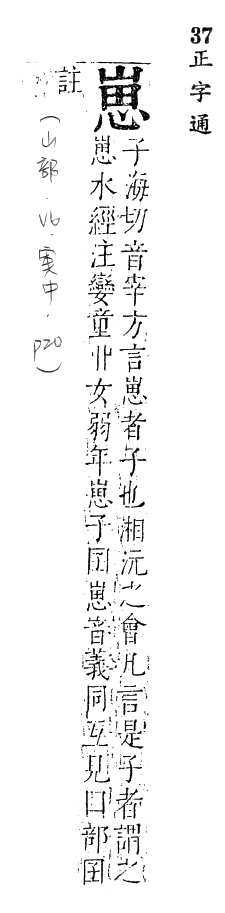 37正字通
崽
子海切音宰方言崽者子也湘沅之會凡言是子者謂之
崽水經注孌童丱女弱年崽子囝崽音義同互見口部囝
註
(山部.V6.寅中.p20)